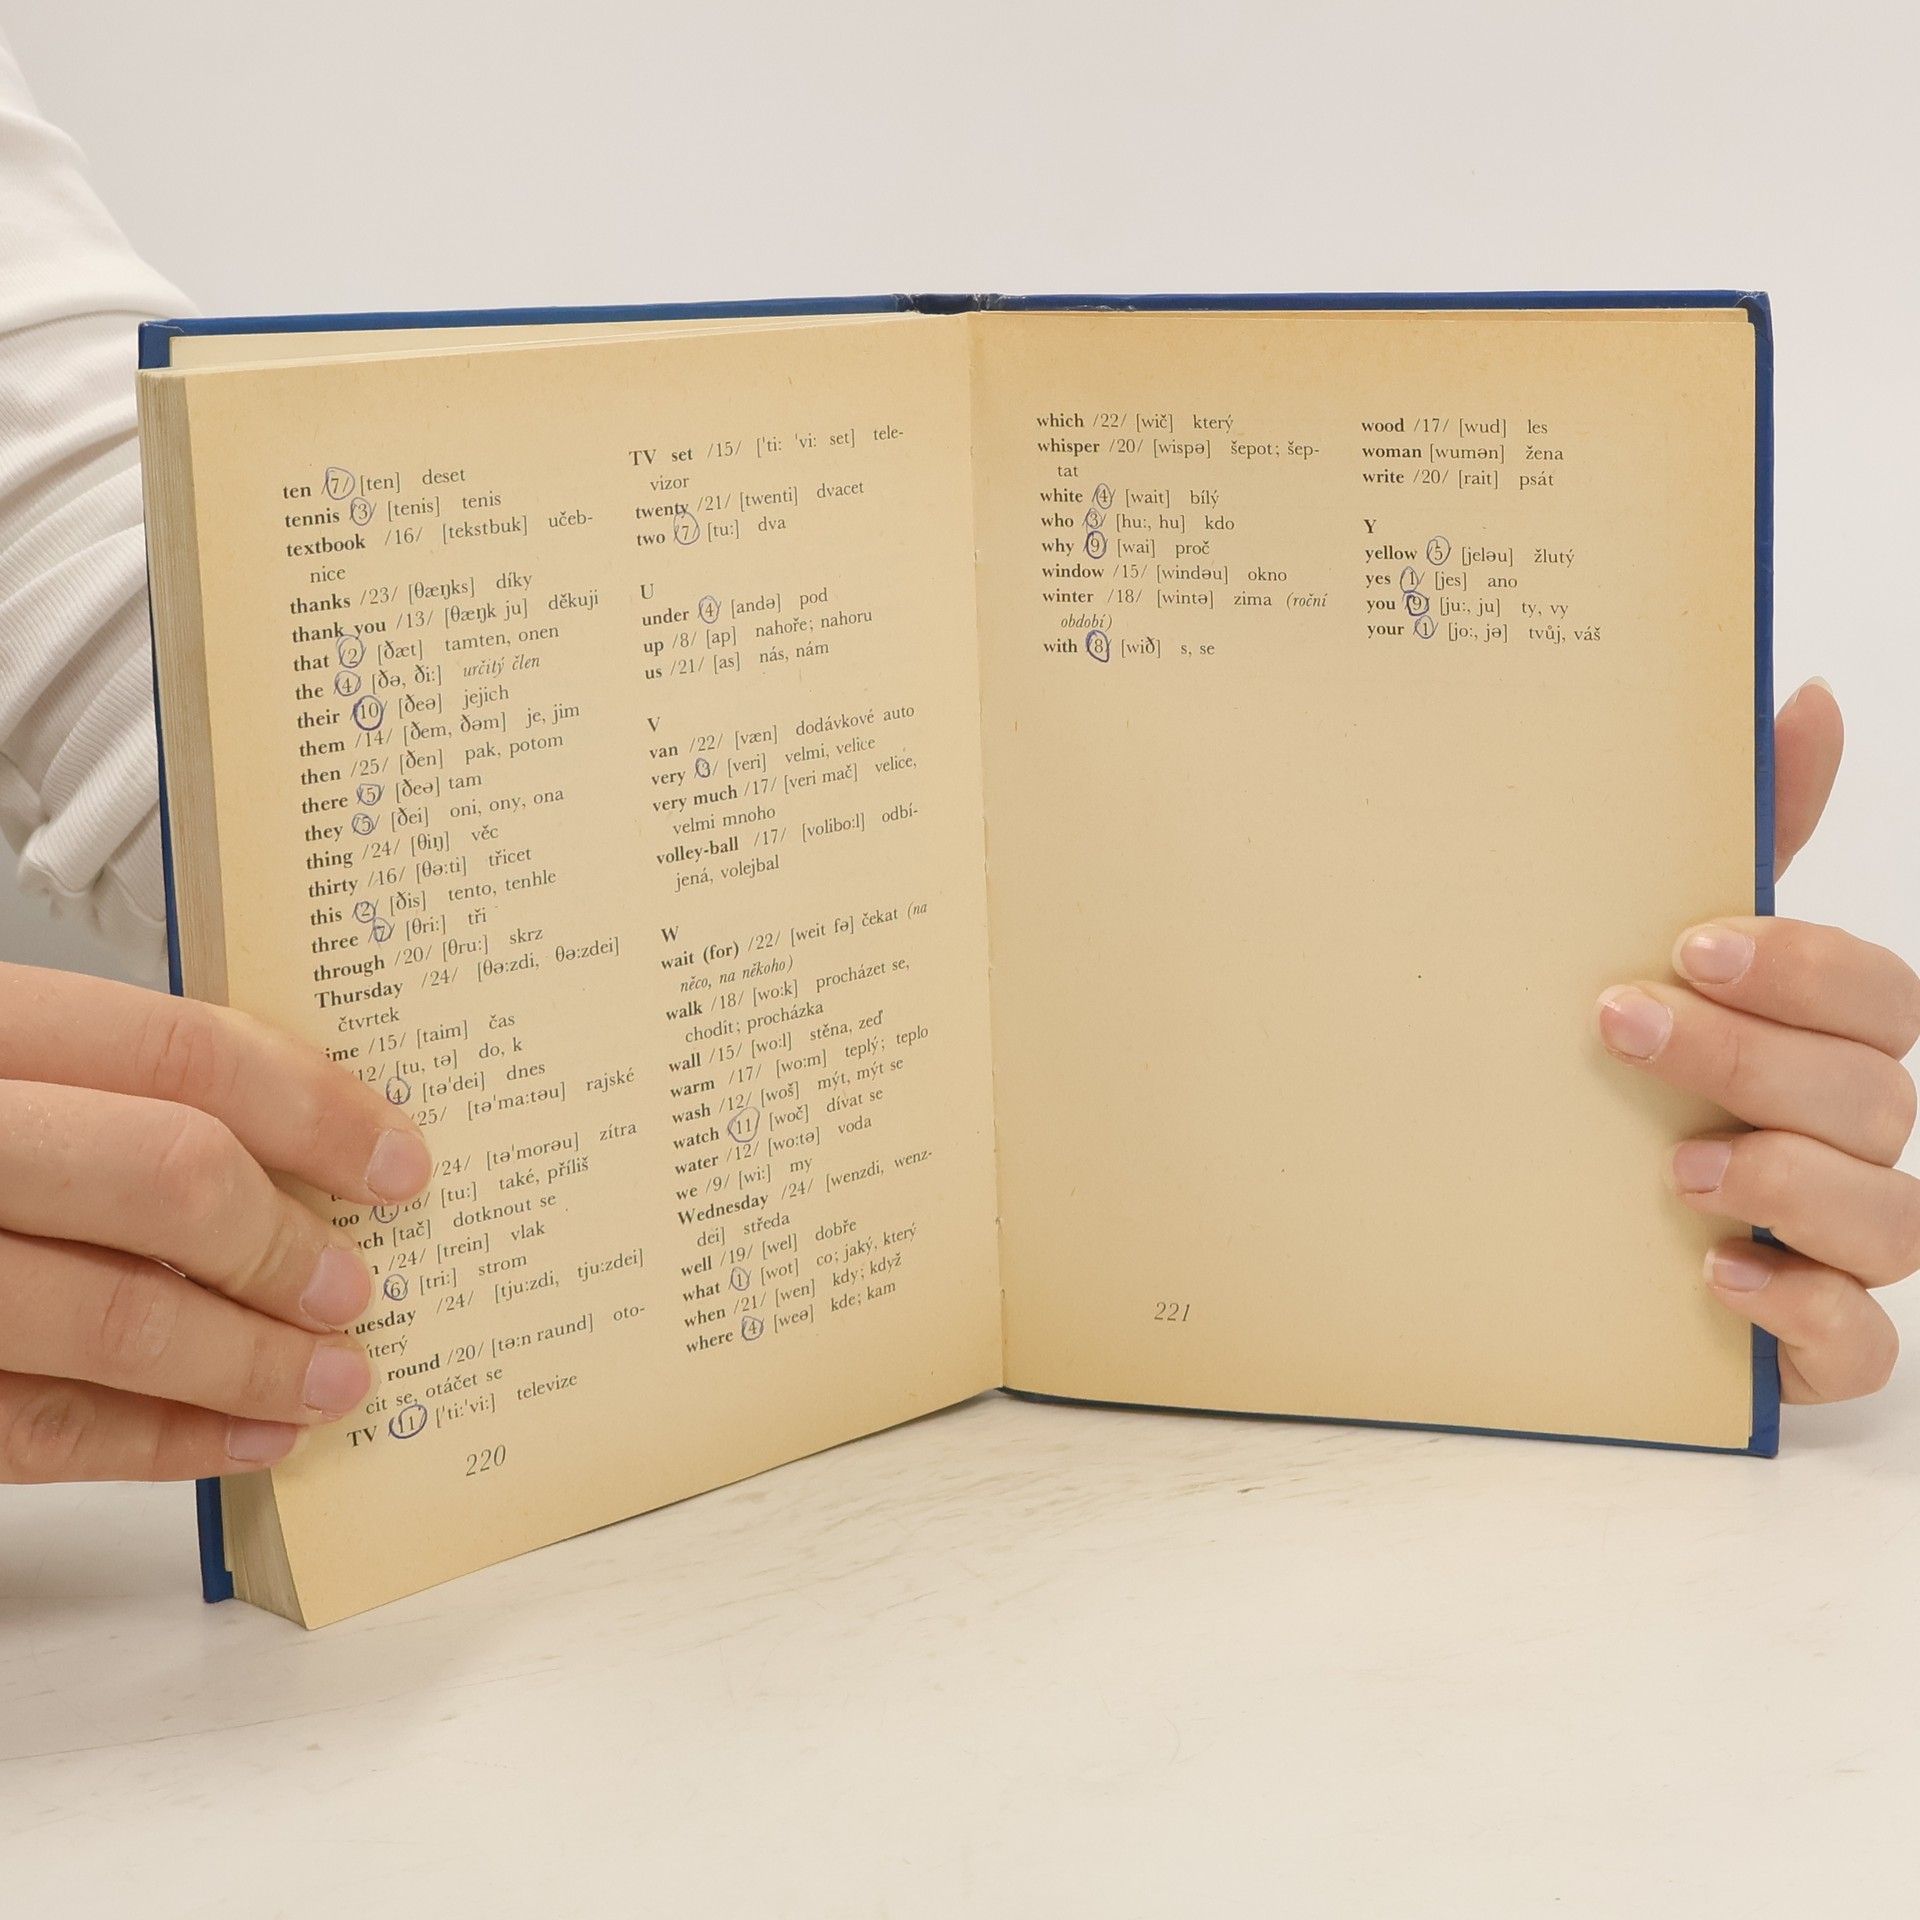 ten /7/ [ten] deset
tennis /3/ [tenis] tenis
textbook /16/ [tekstbuk] učeb-
nice
thanks /23/ [θæŋks] díky
thank you /13/ [θæŋk ju] děkuji
that /2/ [ðæt] tamten, onen
the /4/ [ðə, ði:] určitý člen
their /10/ [ðeə] jejich
them /14/ [ðem, ðəm] je, jim
then /25/ [ðen] pak, potom
there /5/ [ðeə] tam
they /5/ [ðei] oni, ony, ona
thing /24/ [θiŋ] věc
thirty /16/ [θə:ti] třicet
this /2/ [ðis] tento, tenhle
three /7/ [θri:] tři
through /20/ [θru:] skrz
Thursday /24/ [θə:zdi, θə:zdei]
čtvrtek
ime /15/ [taim] čas
/12/ [tu, tə] do, k
/4/ [tə'dei] dnes
/25/ [tə'ma:təu] rajské
/24/ [tə'morəu] zítra
too /1, 18/ [tu:] také, příliš
ch [tač] dotknout se
n /24/ [trein] vlak
/6/ [tri:] strom
uesday /24/ [tju:zdi, tju:zdei]
úterý
round /20/ [tə:n raund] oto-
čit se, otáčet se
TV /11/ ['ti:'vi:] televize
220
TV set /15/ ['ti: 'vi: set] tele-
vizor
twenty /21/ [twenti] dvacet
two /7/ [tu:] dva
U
under /4/ [andə] pod
up /8/ [ap] nahoře; nahoru
us /21/ [as] nás, nám
V
van /22/ [væn] dodávkové auto
very /3/ [veri] velmi, velice
very much /17/ [veri mač] velice,
velmi mnoho
volley-ball /17/ [volibo:l] odbí-
jená, volejbal
W
wait (for) /22/ [weit fə] čekat (na
něco, na někoho)
walk /18/ [wo:k] procházet se,
chodit; procházka
wall /15/ [wo:l] stěna, zeď
warm /17/ [wo:m] teplý; teplo
wash /12/ [woš] mýt, mýt se
watch /11/ [woč] dívat se
water /12/ [wo:tə] voda
we /9/ [wi:] my
Wednesday /24/ [wenzdi, wenz-
dei] středa
well /19/ [wel] dobře
what /1/ [wot] co; jaký, který
when /21/ [wen] kdy; když
where /4/ [weə] kde; kam
which /22/ [wič] který
whisper /20/ [wispə] šepot; šep-
tat
white /4/ [wait] bílý
who /3/ [hu:, hu] kdo
why /9/ [wai] proč
window /15/ [windəu] okno
winter /18/ [wintə] zima (roční
období)
with /8/ [wið] s, se
wood /17/ [wud] les
woman [wumən] žena
write /20/ [rait] psát
Y
yellow /5/ [jeləu] žlutý
yes /1/ [jes] ano
you /9/ [ju:, ju] ty, vy
your /1/ [jo:, jə] tvůj, váš
221